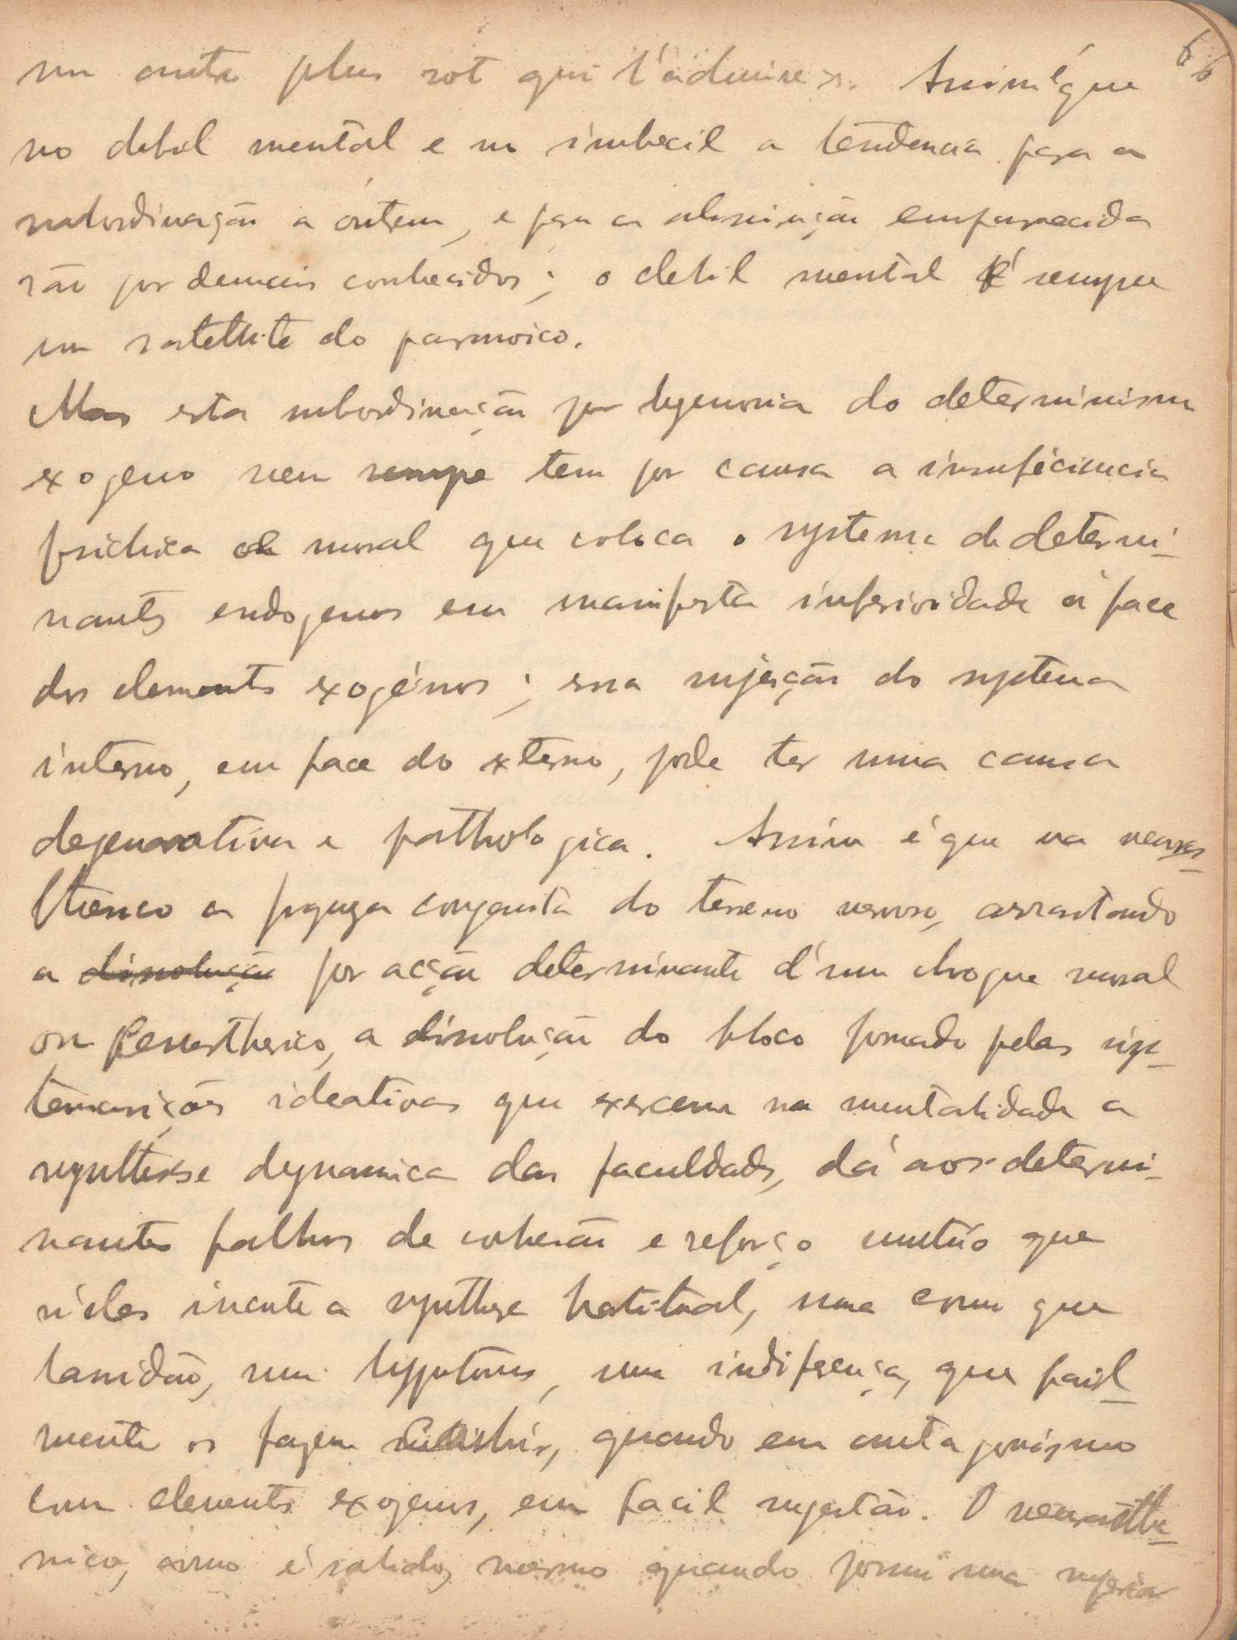 66
un autre plus sot qui l'admire». Assim é que
no debil mental e no imbecil a tendencia para a
subordinação a outrem, e para a admiração
são por demais conhecidos; o debil mental é sempre
um satellite do paranoico.
Mas esta subordinação por hegemonia do determinismo
exogeno nem sempre tem por causa a insuficiencia
psichica ou moral que coloca o systema de determi-
nantes endogenos em manifesta inferioridade á face
dos elementos exogénos; essa sujeição do systema
interno, em face do externo, pode ter uma causa
degenerativa e pathologica. Assim é que na neuras-
thenico a congenita do terreno nervoso, arrastando
a dissolução por acção determinante d'um choque moral
ou a dissolução do bloco formado pelas sys-
tematisações ideativas que exercem na mentalidade a
synthese dynamica das faculdades, dá aos determi-
nantes falhos de cohesão e reforço mutúo que
n'eles incute a synthese habitual, uma como que
lassidão, um hypotonus, uma indiferença, que facil-
mente os fazem quando em antagonismo
com elementos exogenos, em facil sugestão. O neurasthe-
nico, como é sabido, mesmo quando possui uma superior